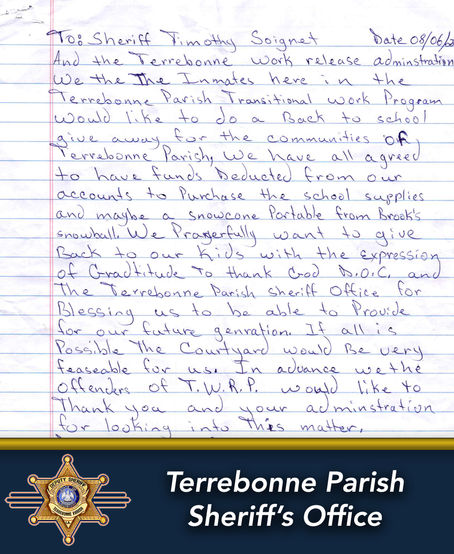 To: Sheriff Timothy Soignet Date 08/06/2
And the Terrebonne work release adminstration
We the The Inmates here in the
Terrebonne Parish Transitional work Program
would like to do a Back to school
give away for the communities of
Terrebonne Parish, We have all agreed
to have funds Deducted from our
accounts to Purchase the school supplies
and maybe a snowcone Portable from Brook's
snowball. We Prayerfully want to give
Back to our Kids with the expression
of Gradtitude To thank God D.O.C. and
The Terrebonne Parish sheriff Office for
Blessing us to be able to Provide
for our future genration. If all is
Possible The Courtyard would Be very
feaseable for us. In advance we the
Offenders of T.W.R.P. would like to
Thank you and your adminstration
for looking into This matter.
Terrebonne Parish
Sheriff's Office